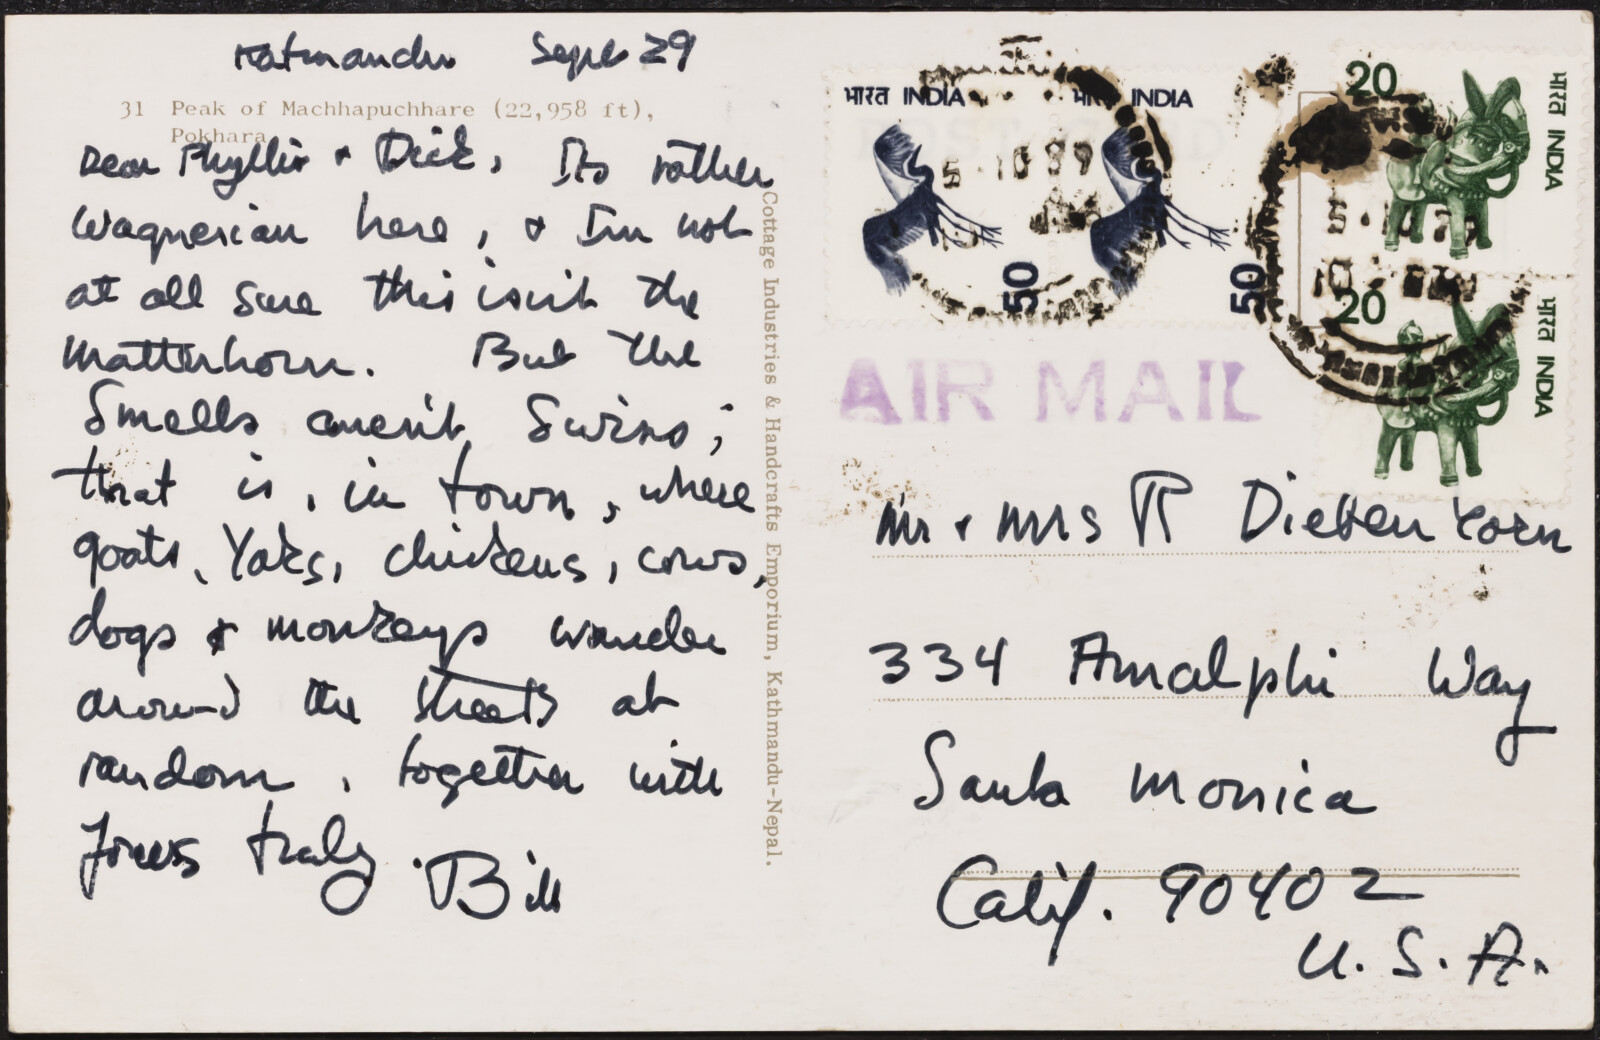 Katmandu Sept 29
31 Peak of Machhapuchhare (22,958 ft),
Pokhara
Dear Phyllis + Dick, Its rather
Wagnerian here, & I'm not
at all sure this isn't the
Matterhorn. But the
Smells aren't Swiss;
that is, in town, where
goats, Yaks, chickens, cows,
dogs & monkeys wander
around the streets at
random, together with
Yours truly. Bill
Cottage Industries & Handcrafts Emporium, Kathmandu-Nepal.
भारत INDIA
50
भारत INDIA
50
20
भारत INDIA
20
भारत INDIA
AIR MAIL
Mr + Mrs R Diebenkorn
334 Amalphi Way
Santa Monica
Calif. 90402
U.S.A.